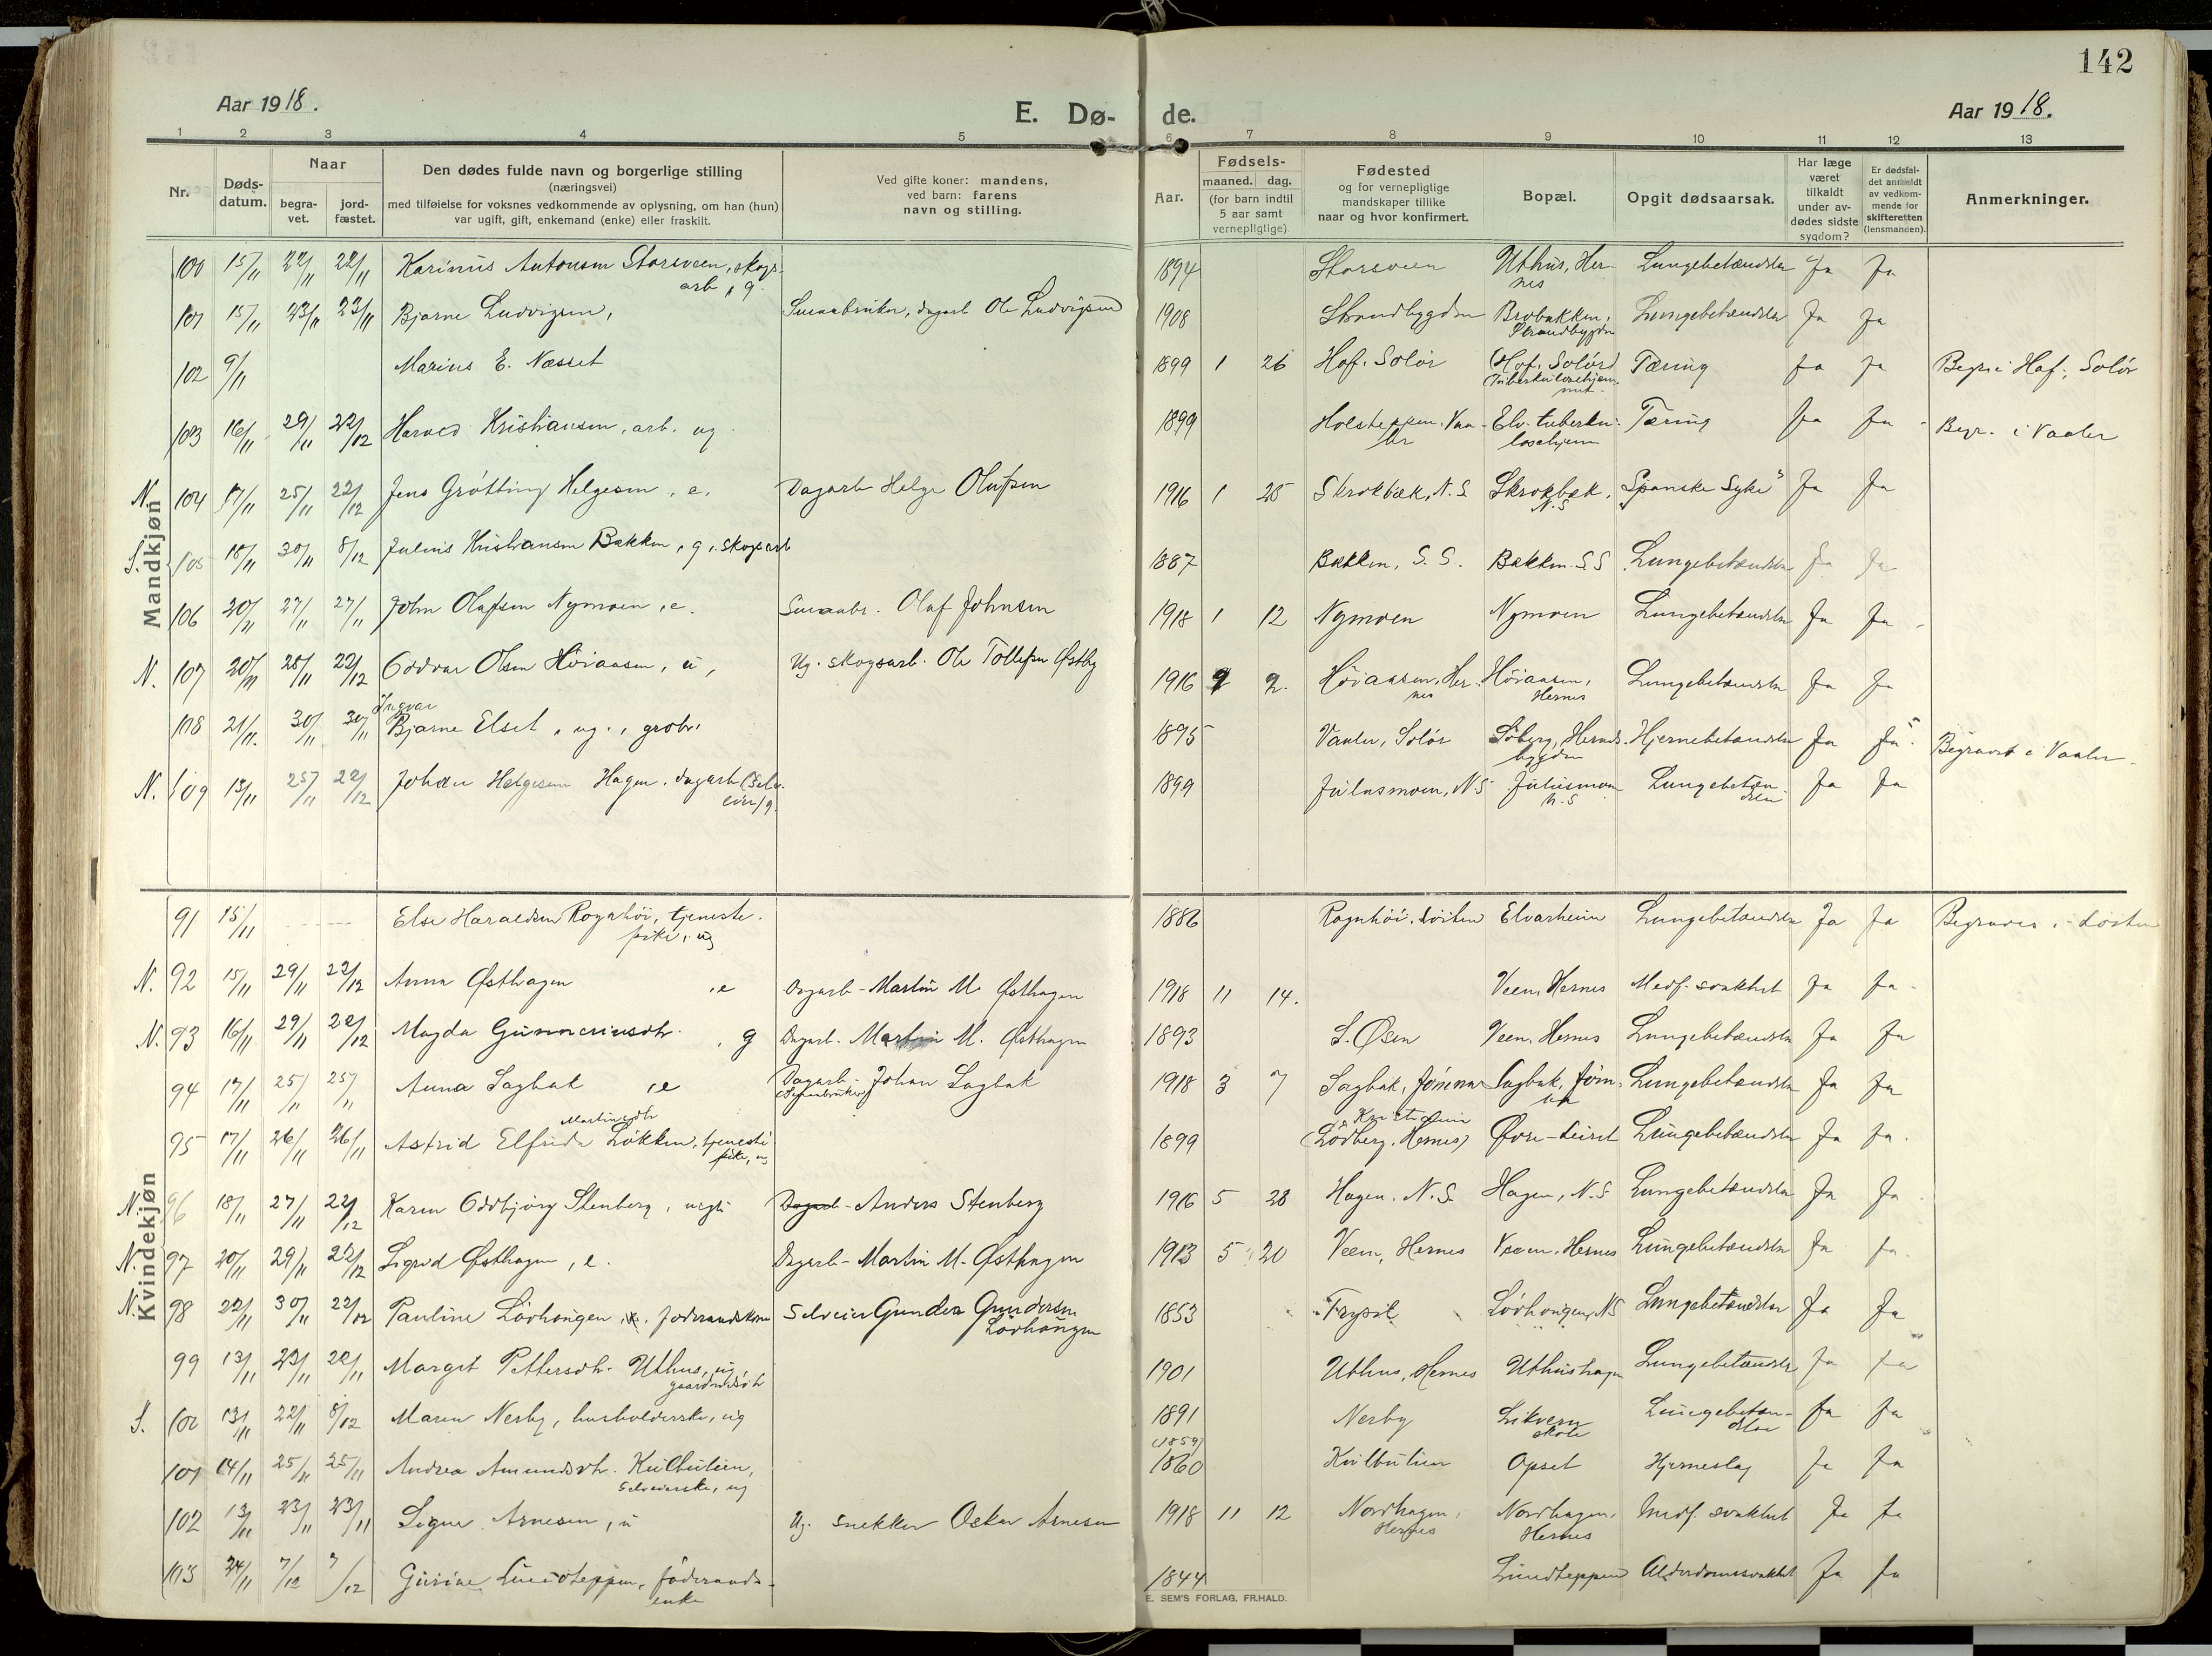 142
Aar 1918.
E. Dø-
de.
Aar 1918.
1 2 3 4 5 6 7 8 9 10 11 12 13
Nr.
Døds-datum.
Naar
begra-vet.
jord-fæstet.
Den dødes fulde navn og borgerlige stilling
(næringsvei)
med tilføielse for voksnes vedkommende av oplysning, om han (hun)
var ugift, gift, enkemand (enke) eller fraskilt.
Ved gifte koner: mandens,
ved barn: farens
navn og stilling.
Aar.
Fødsels-
maaned. dag.
(for barn indtil
5 aar samt
vernepligtige)
Fødested
og for vernepligtige
mandskaper tillike
naar og hvor konfirmert.
Bopæl.
Opgit dødsaarsak.
Har læge
været
tilkaldt
under av-
dødes sidste
sygdom?
Er dødsfal-
det anmeldt
av vedkom-
mende for
skifteretten
(lensmanden).
Anmerkninger.
Mandkjøn
100 15/11 22/11 22/11 Karinus Antonsen Storsveen, skogs- 1894 Storsveen Uthus, Her- Lungebetændelse Ja Ja
arb, g. nes
101 15/11 23/11 23/11 Bjarne Ludvigsen, Smaabruker, dagarb Ole Ludvigsen 1908 Strandbygden Brobakken, Lungebetændelse Ja Ja
Strandbygden
102 9/11 Marius E. Næsset 1899 1 26 Hof, Solør (Hof, Solør) Tæring Ja Ja Begr. i Hof, Solør
Tuberkulosehjem-
met
103 16/11 29/11 22/12 Harald Kristiansen, arb. ug 1899 Holsteppen, Vaa- Elv. tuberku- Tæring Ja Ja Begr. i Vaaler
ler losehjem
N. 104 17/11 25/11 22/12 Jens Grøtting Helgesen, e. Dagarb Helge Olufsen 1916 1 25 Skrokbæk, N.S. Skrokbæk, "Spanske Syke" Ja Ja
N.S
S. 105 18/11 30/11 8/12 Julius Kristiansen Bakken, g, skogsarb 1887 Bakken, S.S. Bakken S.S Lungebetændelse Ja Ja
106 20/11 27/11 27/11 John Olafsen Nymoen, e. Smaabr. Olaf Johnsen 1918 1 12 Nymoen Nymoen Lungebetændelse Ja Ja
N. 107 20/11 28/11 22/12 Oddvar Olsen Høiaasen, u, Ug. skogsarb. Ole Tollefsen Østby 1916 9 2. Høiaasen, Her- Høiaasen, Lungebetændelse Ja Ja
nes Hernes
Ingvar
108 21/11. 30/11 30/11 Bjarne Elset, ug., grobr. 1895 Vaaler, Solør Søberg, Hernes- Hjernebetændelse Ja Ja Begravet i Vaaler.
bygden
N. 109 13/11 25/11 22/12 Johan Helgesen Hagen, dagarb (selv- 1899 Julusmoen, N.S Julusmoen Lungebetæn- Ja Ja
eier) g. N.S delse
Kvindekjøn
91 15/11 Else Haraldsen Rognhøi, tjeneste- 1886 Rognhøi, Løiten Elvarheim Lungebetændelse Ja Ja Begraves i Løiten
pike, ug
N. 92 15/11 29/11 22/12 Anna Østhagen, e Dagarb - Martin M. Østhagen 1918 11 14. Veen, Hernes Medf. svakhet Ja Ja
N. 93 16/11 29/11 22/12 Magda Gunneriusdtr., g Dagarb. Martin M. Østhagen 1893 S. Øsen Veen, Hernes Lungebetændelse Ja Ja
94 17/11 25/11 25/11 Anna Sagbak, e Dagarb - Johan Sagbak 1918 3 7 Sagbak, Jømna Sagbak, Jøm- Lungebetændelse Ja Ja
na
Martinsdtr Kristiania
95 17/11 26/11 26/11 Astrid Elfrida Løkken, tjeneste- 1899 (Lødberg, Hernes) Øvre-Leiret Lungebetændelse Ja Ja.
pike, ug
N. 96 18/11 27/11 22/12 Karen Oddbjørg Stenberg, uegte Dagarb - Anders Stenberg 1916 5 28 Hagen, N.S. Hagen, N.S Lungebetændelse Ja Ja
N. 97 20/11 29/11 22/12 Sigrid Østhagen, e. Dagarb - Martin M. Østhagen 1913 5 20 Veen, Hernes Veen, Hernes Lungebetændelse Ja Ja
N. 98 22/11 30/11 22/12 Pauline Løvhaugen, føderaadskone Selveier Gunder Gundersen 1853 Trysil Løvhaugen, NS Lungebetændelse Ja Ja
Løvhaugen
99 13/11 23/11 22/11 Margit Pettersdtr. Uthus, ug, 1901 Uthus, Hernes Uthushagen Lungebetændelse Ja Ja
S. 100 13/11 22/11 8/12 Maren Nerby, husholderske, ug 1891 Nerby skole Lungebetæn- Ja Ja
delse
(1859)
101 14/11 25/11 25/11 Andrea Amundsdtr. 1860 Opset Hjerneslag Ja Ja
Selveierske, ug
102 13/11 23/11 23/11 Signe Arnesen, u Ug. snekker Oskar Arnesen 1918 11 12 Nordhagen, Nordhagen, Medf. svakhet Ja Ja
Hernes Hernes
103 24/11 7/12 7/12 Gurine Lundteppen, føderaads- 1844 Lundteppen Alderdomssvakhet Ja Ja
enke
E. SEM'S FORLAG, FR.HALD.